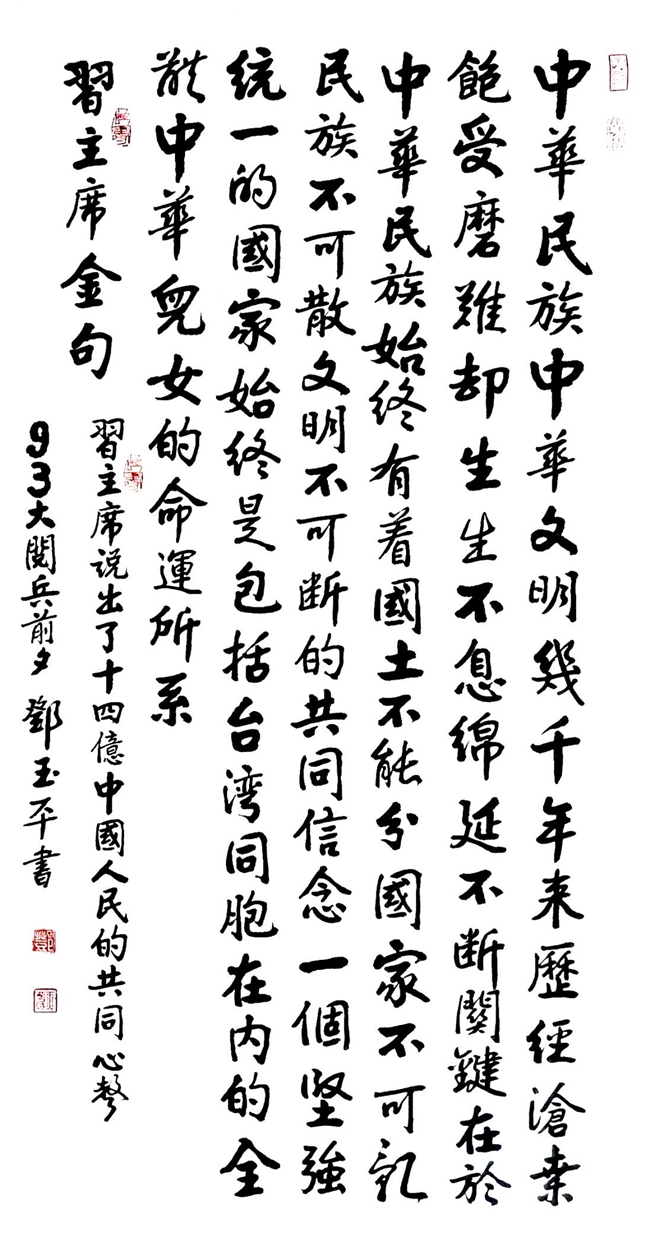 中華民族中華文明幾千年来歷經滄桑
飽受磨難却生生不息綿延不断関鍵在於
中華民族始终有着國土不能分國家不可乱
民族不可散文明不可断的共同信念一個堅強
统一的國家始终是包括台湾同胞在内的全
體中華兒女的命運所系
習主席金句
習主席说出了十四億中國人民的共同心聲
93大閱兵前夕鄧玉平書